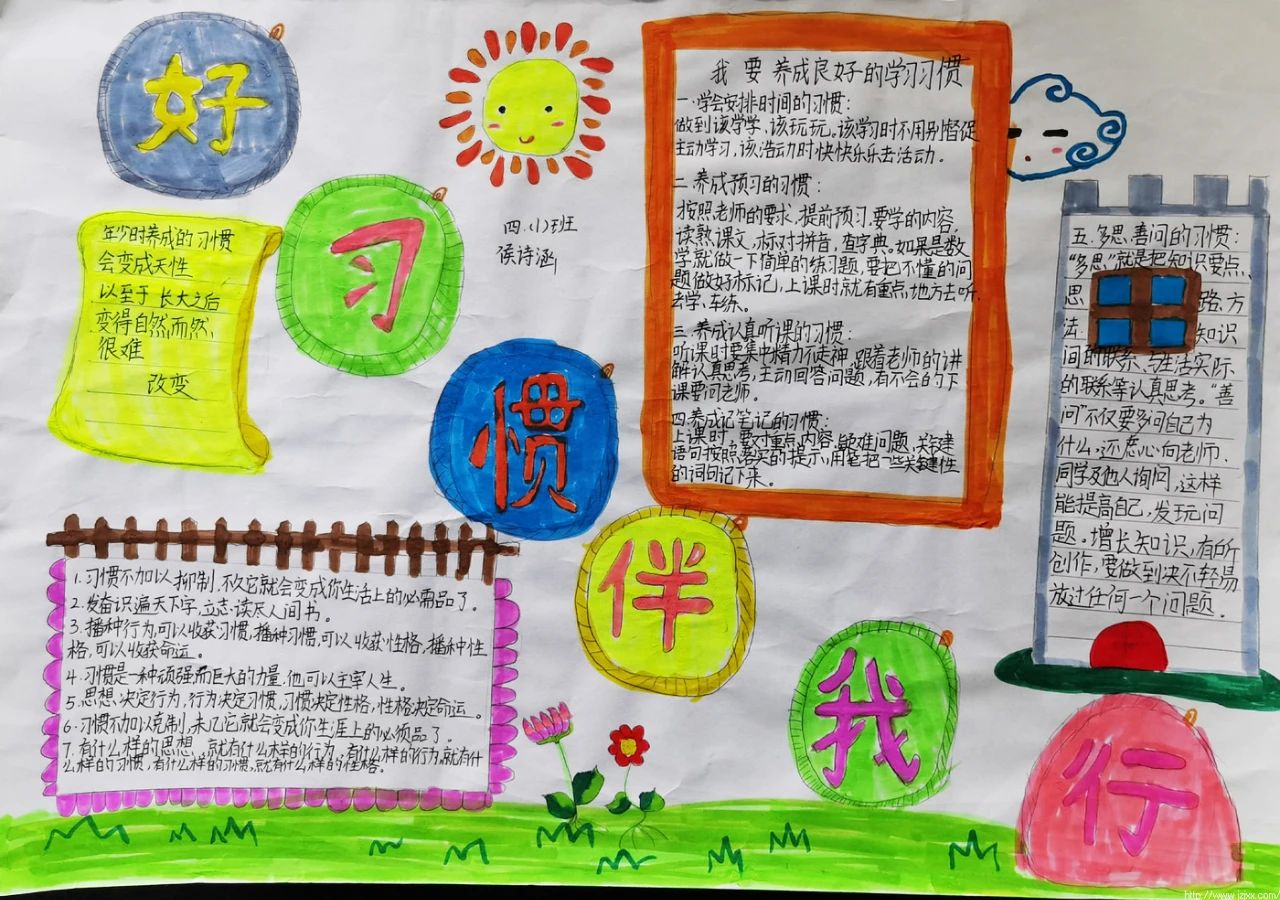 好
习
惯
伴
我
行
四.(1)班
侯诗涵
年少时养成的习惯
会变成天性
以至于长大之后
变得自然而然,
很难
改变
我要养成良好的学习习惯
一.学会安排时间的习惯:
做到该学学,该玩玩。该学习时不用别督促
主动学习,该浩动时快快乐乐去活动.
二.养成预习的习惯:
按照老师的要求,提前预习,要学的内容,
读熟课文,标对拼音,查字典。如果是数
学就做一下简单的练习题,要把不懂的问
题做好标记,上课时就有重点地方去听,
去学,去练。
三.养成认真听课的习惯:
听课时要集中精力不走神,跟着老师的讲
解认真思考,主动回答问题,有不会的下
课要问老师.
四.养成记笔记的习惯:
上课时,要对重点,内容,疑难问题,关键
语句按照老实的提示,用笔把一些关键性
的词句记下来。
五.多思.善问的习惯:
“多思”就是把知识要点、
思 路、方
法: 知识
间的联系、与生活实际
的联系等认真思考。“善
问”不仅要多问自己为
什么,还虑心向老师、
同学及他人询问,这样
能提高自己,发玩问
题。增长知识,有所
创作,要做到决不轻易
放过任何一个问题.
1.习惯不加以抑制,不久它就会变成你生活上的必需品了。
2.发奋识遍天下字,立志读尽人间书。
3.播种行为,可以收获习惯,播种习惯,可以收获性格,播种性
格,可以收获命运。
4.习惯是一种顽强而巨大的力量,他可以主宰人生。
5.思想、决定行为,行为决定习惯,习惯决定性格,性格决定命运。
6.习惯不加以克制,未几它就会变成你生涯上的必须品了。
7.有什么样的思想,就有什么样的行为,有什么样的行为,就有什
么样的习惯,有什么样的习惯,就有什么样的性格。